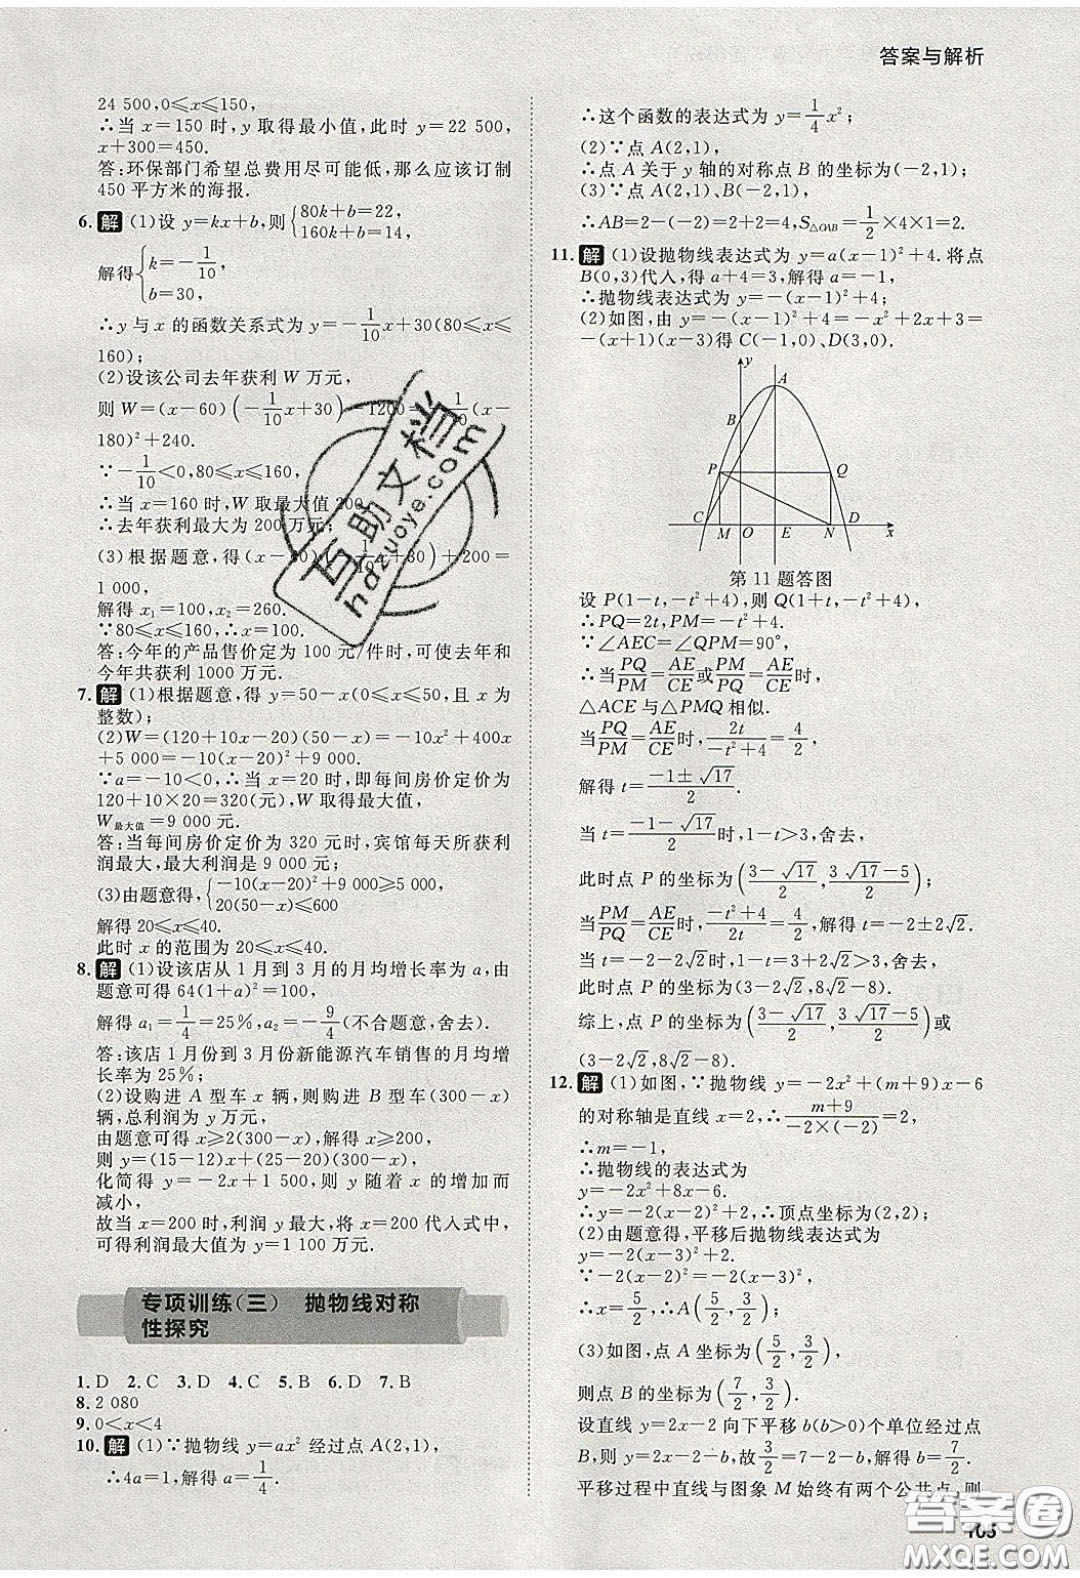 答案与解析
24 500,0≤x≤150,
∴当 x=150 时,y 取得最小值,此时 y=22 500,
x+300=450.
答:环保部门希望总费用尽可能低,那么应该订制
450 平方米的海报.
6. 解 (1)设 y=kx+b,则{80k+b=22, 160k+b=14,
解得{k=-1/10, b=30,
∴y 与 x 的函数关系式为 y=-1/10x+30(80≤x≤
160);
(2)设该公司去年获利 W 万元,
则 W=(x-60)(-1/10x+30)-1200=-1/10(x-
180)²+240.
∵-1/10<0,80≤x≤160,
∴当 x=160 时,W 取最大值 200,
∴去年获利最大为 200 万元;
(3)根据题意,得(x-60)(-1/10x+30)+200=
1 000,
解得 x₁=100,x₂=260.
∵80≤x≤160,∴x=100.
答:今年的产品售价定为 100 元/件时,可使去年和
今年共获利 1000 万元.
7. 解 (1)根据题意,得 y=50-x(0≤x≤50,且 x 为
整数);
(2)W=(120+10x-20)(50-x)=-10x²+400x
+5 000=-10(x-20)²+9 000.
∵a=-10<0,∴当 x=20 时,即每间房价定价为
120+10×20=320(元),W 取得最大值,
W最大值=9 000 元.
答:当每间房价定价为 320 元时,宾馆每天所获利
润最大,最大利润是 9 000 元;
(3)由题意得,{-10(x-20)²+9 000≥5 000, 20(50-x)≤600
解得 20≤x≤40.
此时 x 的范围为 20≤x≤40.
8. 解 (1)设该店从 1 月到 3 月的月均增长率为 a,由
题意可得 64(1+a)²=100,
解得 a₁=1/4=25%,a₂=-9/4(不合题意,舍去).
答:该店 1 月份到 3 月份新能源汽车销售的月均增
长率为 25%;
(2)设购进 A 型车 x 辆,则购进 B 型车(300-x)
辆,总利润为 y 万元.
由题意可得 x≥2(300-x),解得 x≥200,
则 y=(15-12)x+(25-20)(300-x),
化简得 y=-2x+1 500,则 y 随着 x 的增加而
减小,
故当 x=200 时,利润 y 最大,将 x=200 代入式中,
可得利润最大值为 y=1 100 万元.
专项训练(三) 抛物线对称
性探究
1. D 2. C 3. D 4. C 5. B 6. D 7. B
8. 2 080
9. 0<x<4
10. 解 (1)∵抛物线 y=ax² 经过点 A(2,1),
∴4a=1,解得 a=1/4.
∴这个函数的表达式为 y=1/4x²;
(2)∵点 A(2,1),
∴点 A 关于 y 轴的对称点 B 的坐标为(-2,1);
(3)∵点 A(2,1)、B(-2,1),
∴AB=2-(-2)=2+2=4,S△OAB=1/2×4×1=2.
11. 解 (1)设抛物线表达式为 y=a(x-1)²+4.将点
B(0,3)代入,得 a+4=3,解得 a=-1,
∴抛物线表达式为 y=-(x-1)²+4;
(2)如图,由 y=-(x-1)²+4=-x²+2x+3=
-(x+1)(x-3)得 C(-1,0)、D(3,0).
y
A
B
P Q
C M O E N D x
第 11 题答图
设 P(1-t,-t²+4),则 Q(1+t,-t²+4),
∴PQ=2t,PM=-t²+4.
∵∠AEC=∠QPM=90°,
∴当PQ/PM=AE/CE或PM/PQ=AE/CE时,
△ACE 与△PMQ 相似.
当PQ/PM=AE/CE时,2t/(-t²+4)=4/2,
解得 t=(-1±√17)/2.
当 t=(-1-√17)/2时,1-t>3,舍去,
此时点 P 的坐标为((3-√17)/2,(3√17-5)/2);
当PM/PQ=AE/CE时,(-t²+4)/2t=4/2,解得 t=-2±2√2.
当 t=-2-2√2时,1-t=3+2√2>3,舍去,
此时点 P 的坐标为(3-2√2,8√2-8).
综上,点 P 的坐标为((3-√17)/2,(3√17-5)/2)或
(3-2√2,8√2-8).
12. 解 (1)如图,∵抛物线 y=-2x²+(m+9)x-6
的对称轴是直线 x=2,∴-(m+9)/(-2×(-2))=2,
∴m=-1,
∴抛物线的表达式为
y=-2x²+8x-6.
∴y=-2(x-2)²+2,∴顶点坐标为(2,2);
(2)由题意得,平移后抛物线表达式为
y=-2(x-3)²+2.
∵-2(x-2)²+2=-2(x-3)²+2,
∴x=5/2,∴A(5/2,3/2);
(3)如图,点 A 坐标为(5/2,3/2),
则点 B 的坐标为(7/2,3/2).
设直线 y=2x-2 向下平移 b(b>0)个单位经过点
B,则 y=2x-2-b,故3/2=7-2-b,解得 b=7/2.
平移过程中直线与图象 M 始终有两个公共点,则
105
互助文档
hdzuoye.com
答案圈
MXQE.COM